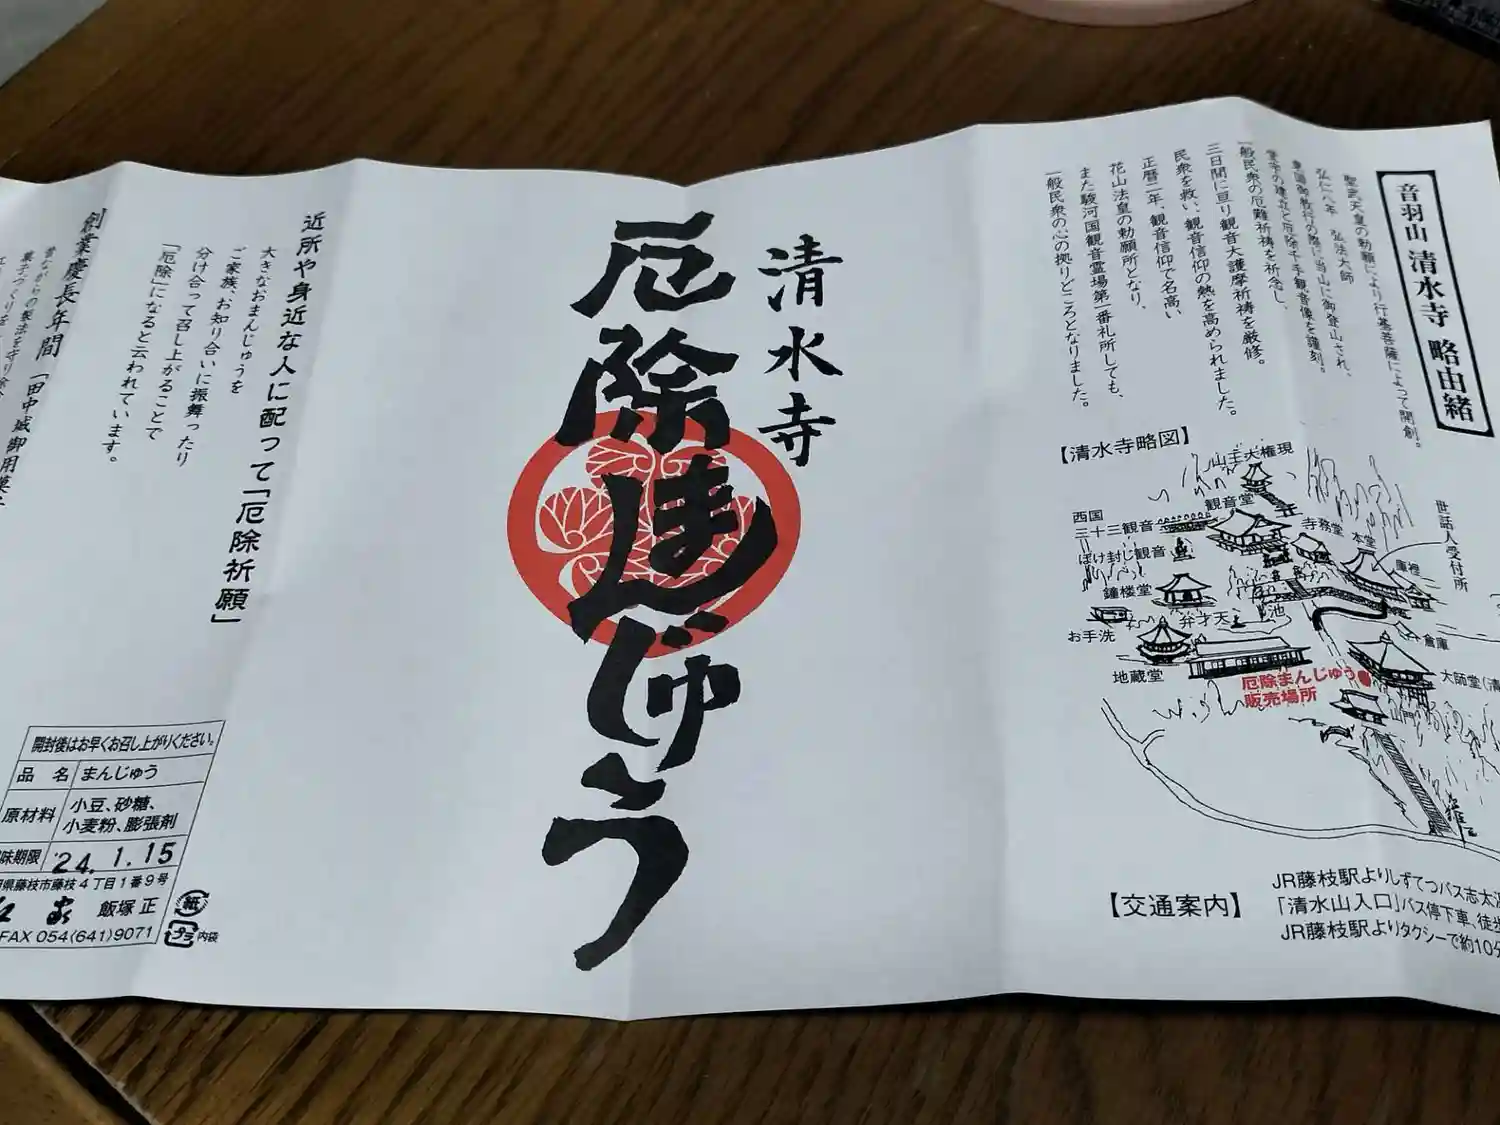 音羽山 清水寺 略由緒
聖武天皇の勅願により行基菩薩によって開創。
弘仁八年 弘法大師
東国御教行の際に当山に御登山され、
堂宇の建立と厄除千手観音像を謹刻。
一般民衆の厄難祈祷を祈念し、
三日間に亘り観音大護摩祈祷を厳修。
民衆を救い、観音信仰の熱を高められました。
正暦二年、観音信仰で名高い
花山法皇の勅願所となり、
また駿河国観音霊場第一番札所しても、
一般民衆の心の拠りどころとなりました。
【清水寺略図】
山王大権現
観音堂
西国
三十三観音
寺務堂
本堂
庫裡
世話人受付所
ぼけ封じ観音
鐘楼堂
池
弁才天
お手洗
倉庫
地蔵堂
大師堂(清
厄除まんじゅう
販売場所
山門
【交通案内】
JR藤枝駅よりしずてつバス志太
「清水山入口」バス停下車、徒歩
JR藤枝駅よりタクシーで約10分
清水寺
厄除まんじゅう
近所や身近な人に配って「厄除祈願」
大きなおまんじゅうを
ご家族、お知り合いに振舞ったり
分け合って召し上がることで
「厄除」になると云われています。
創業慶長年間「田中城御用菓子
昔ながらの製法を守り
菓子づくりを
開封後はお早くお召し上がりください。
品 名 まんじゅう
原材料 小豆、砂糖、
小麦粉、膨張剤
味期限 '24.1.15
県藤枝市藤枝4丁目1番9号
飯塚 正
FAX 054(641)9071
紙
プラ
内袋